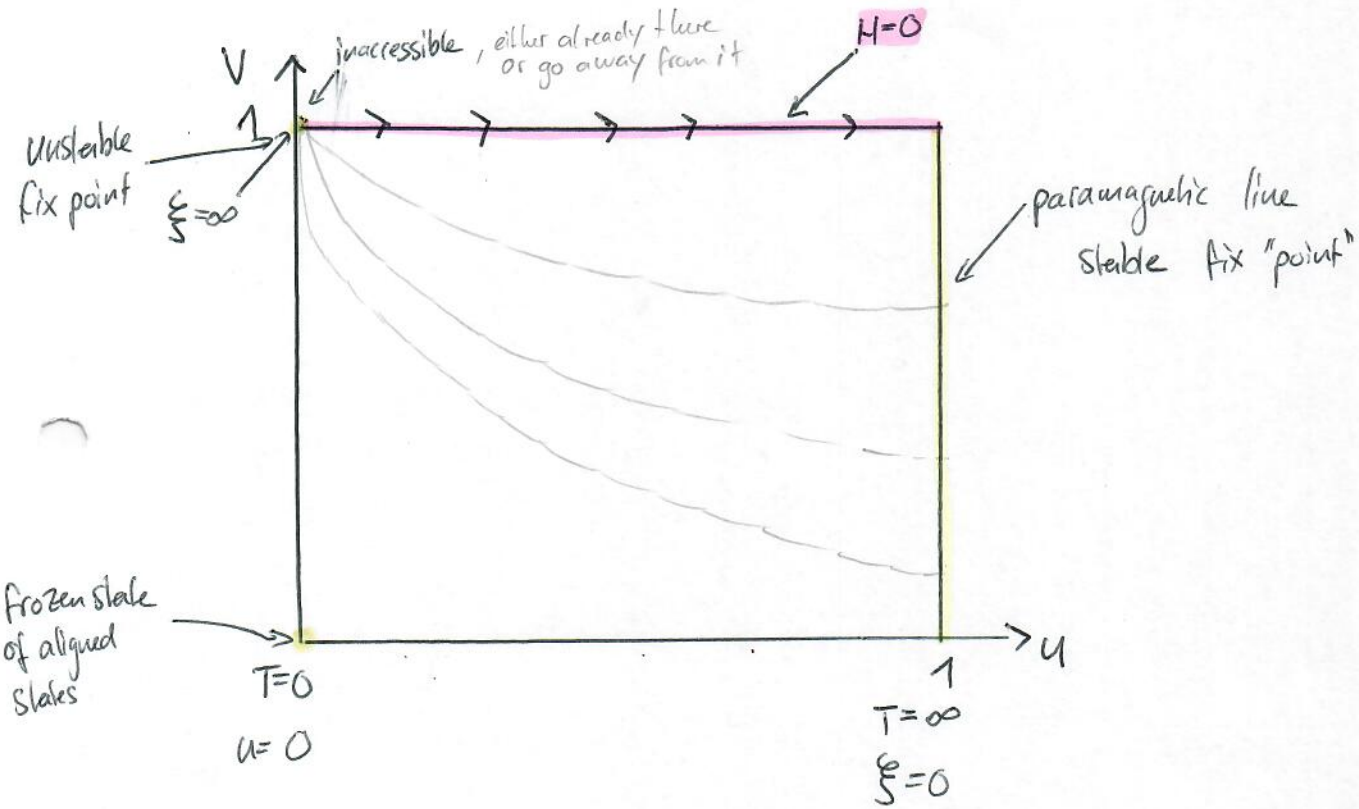 inaccessible, either already there
or go away from it
H=0
V
1
Unstable
fix point
ξ=∞
paramagnetic line
stable fix "point"
frozen state
of aligned
states
T=0
u=0
u
1
T=∞
ξ=0